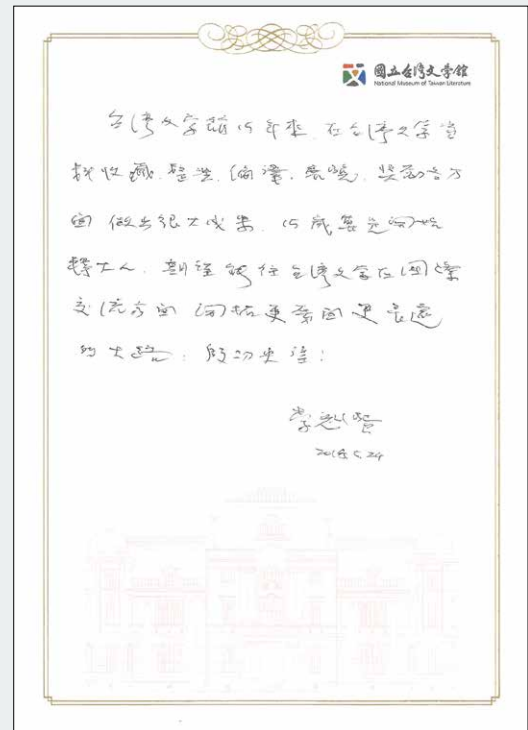 國立台灣文學館
National Museum of Taiwan Literature
台灣文學館15年來,在台灣文學資
料收藏、整理、編譯、展覽、獎勵各方
面做出很大成果。15歲算是開始
轉大人,期望能往台灣文學在國際
交流方面開拓更寬闊更長遠
的大路,殷切更進!
李魁賢
2018.5.24